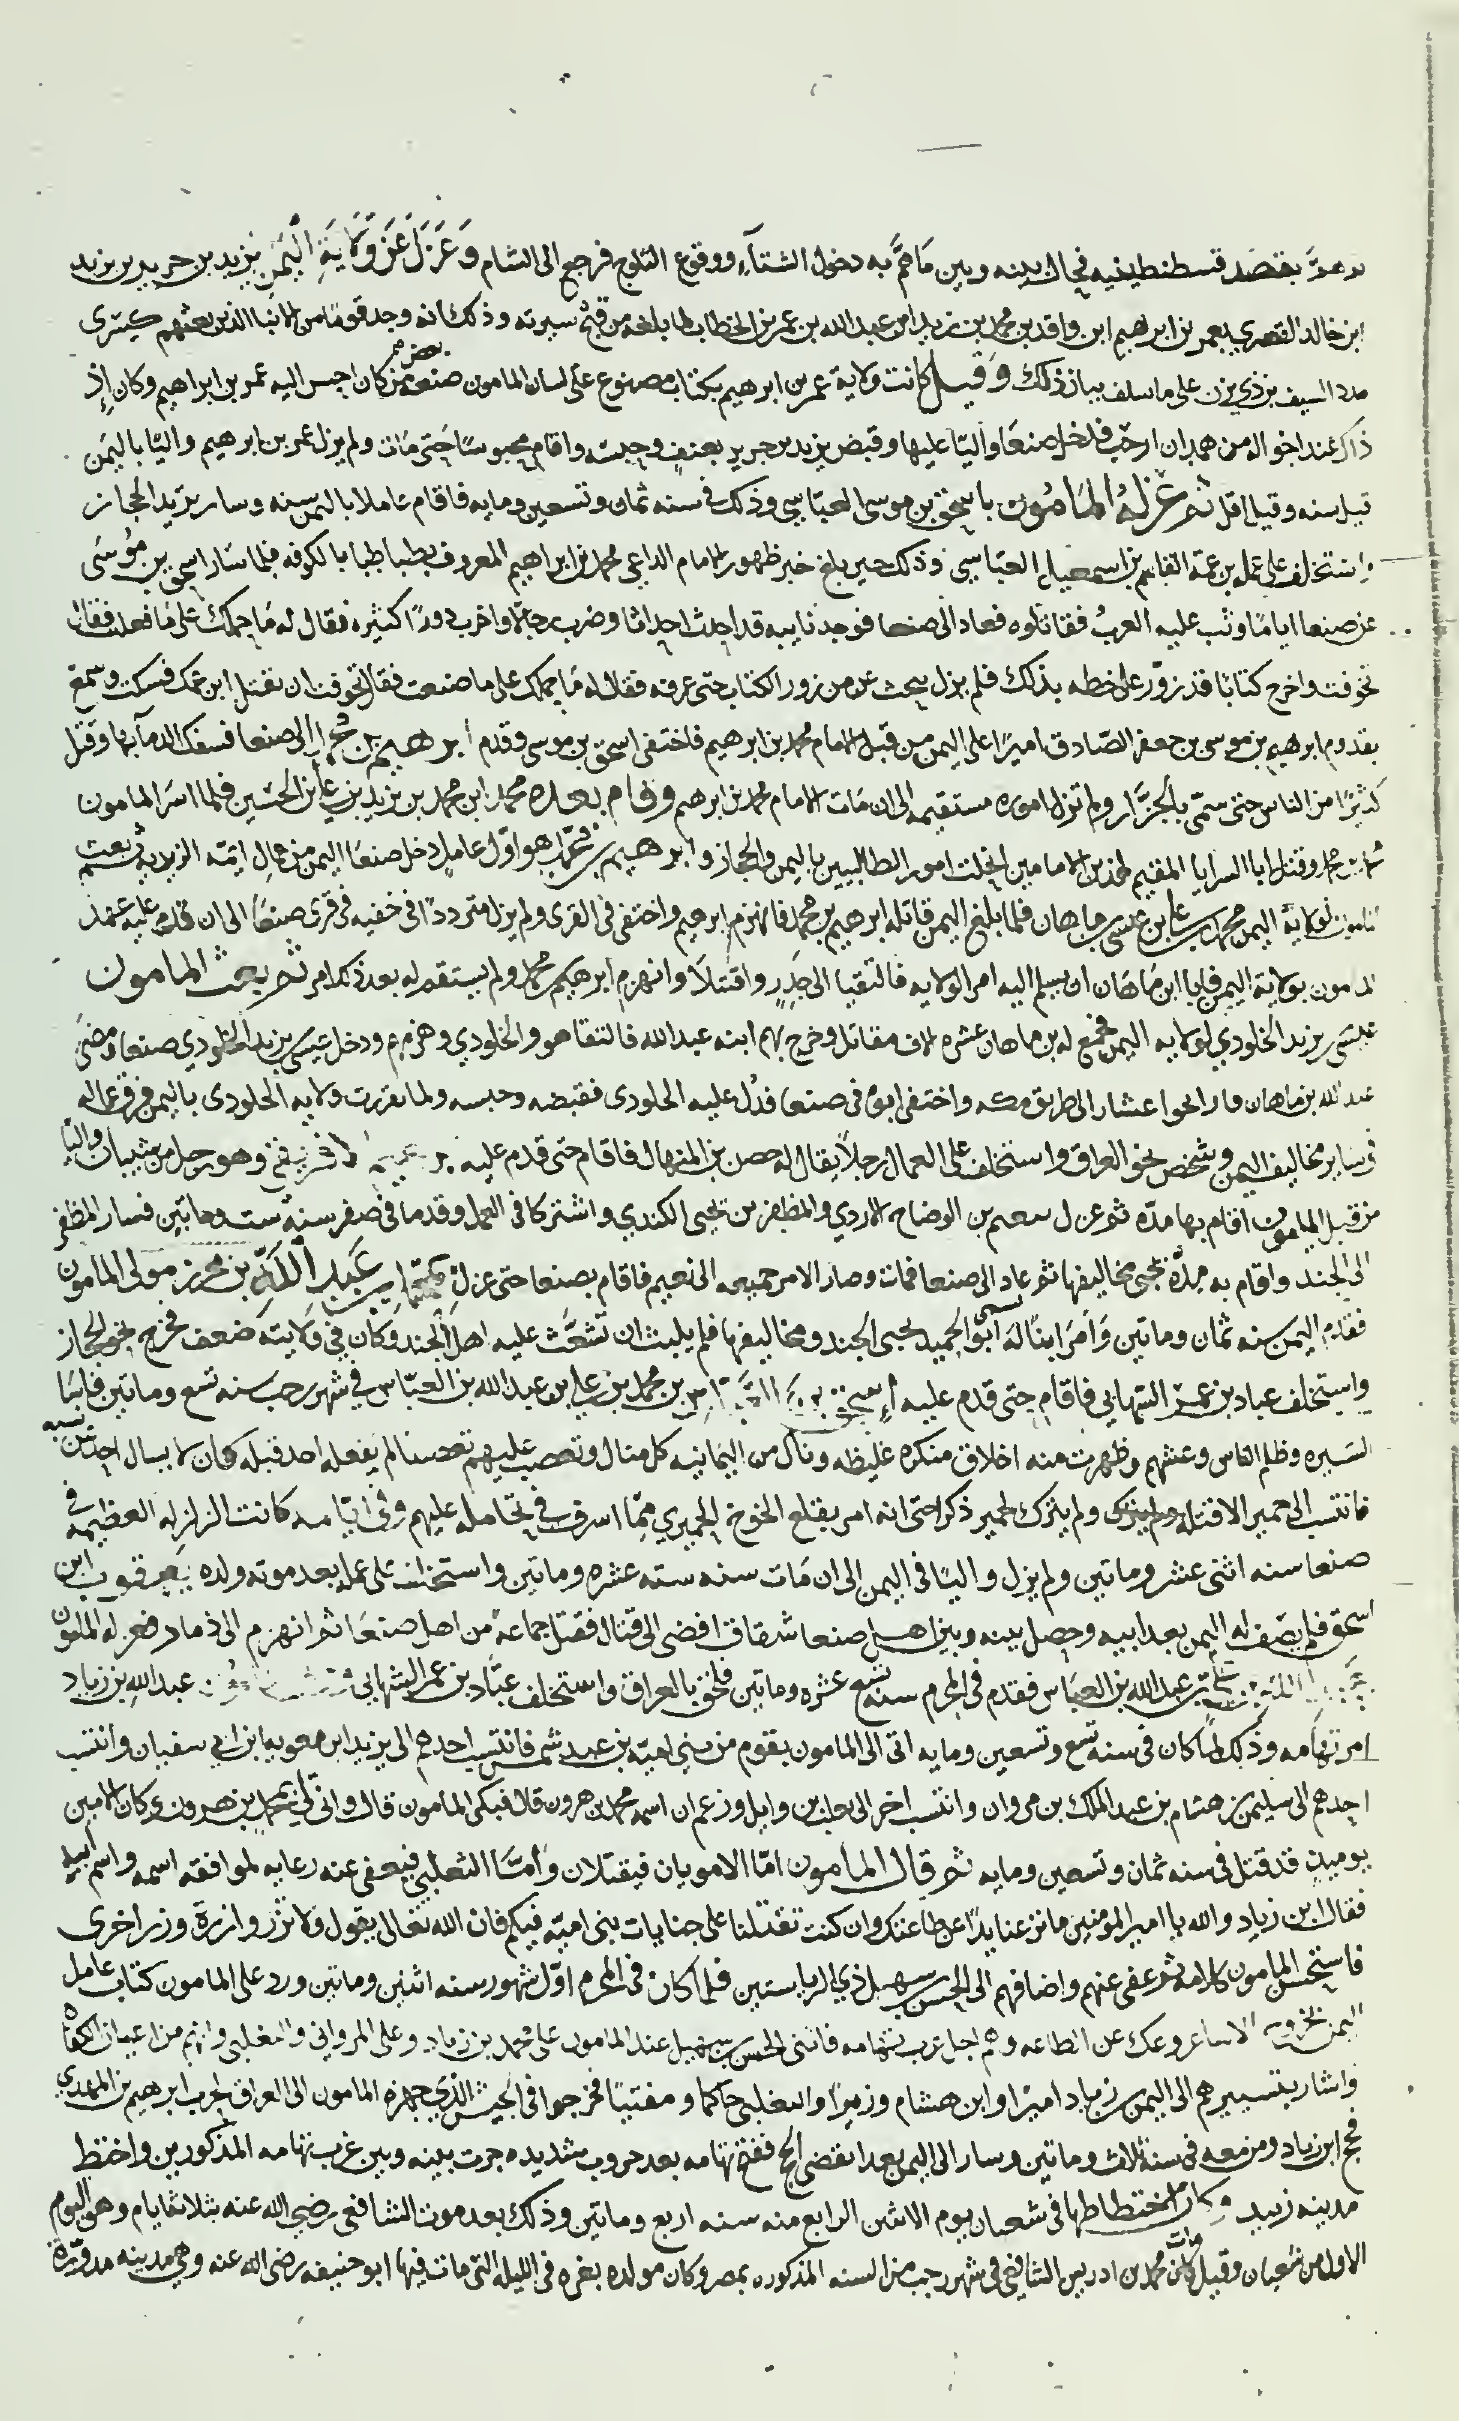 بقصد قسطنطينيه فحال بينه وبين ما هم به دخول الشتآء ووقوع الثلوج فرجع الى الشام وَعَزَلَ عَن وَلَايَةِ الْيَمَنِ يزيد بن جرير بن يزيد
ابن خالد القصري بعمر بن ابرهيم ابن واقد بن محمد بن زيد ابن عبد الله بن عمر بن الخطاب لما بلغه من قبح سيرته وذلك انه وجد قومًا من الابنا الذين بعثهم كسرى
مدد السيف بن ذي يزن على ما سلف بيان ذلك وَقيل كانت ولاية عمر بن ابرهيم بكتاب مصنوع على لسان المامون صنعه بعض من كان احسن اليه عمر بن ابراهيم وكان إذ
ذاك عند اخواله من همدان ارحب فدخل صنعا واليًا عليها وقبض يزيد بن جرير بعنف وحبسه واقام محبوسًا حتى مَات ولم يزل عمر بن ابرهيم واليًا باليمن
قيل سنه وقيل اقل ثم عزله المامون باسحق بن موسى العبّاسي وذلك في سنه ثمان وتسعين ومايه فاقام عاملا باليمن سنه وسار يريد الحجاز
واستخلف على عمله بن عمة القاسم بن اسمعيل العباسي وذلك حين بلغ خبر ظهور الامام الداعي محمد بن ابراهيم المعروف بطباطبا بالكوفه فلما سَار اسحق بن موُسَى
عن صنعا اياما وثب عليه العرب فقاتلوه فعاد الى صنعا فوجد نايبه قد احدث احداثا وضرب رجالا واخرب دورًا كثيره فقال له مَا حملك على مَا فعلت فقال
تخوفت واخرج كتابا قد زوّر على خطه بذلك فلم يزل يبحث عن من زور الكتاب حتى عرفه فقال له مَا حملك على ما صنعت فقال تخوفت ان تقتل ابن عمك فسكت وسمع
بقدوم ابرهيم بن موسى بن جعفر الصّادق اميرًا على اليمن من قبل الامام محمد بن ابرهيم فاختفى اسحق بن موسى وقدم ابرهيم بن محمد الى صنعا فسفك الدمآ بها وقتل
كثيرًا من الناس حتى سمّى بالجزّار ولم تزل اموره مستقيمه الى ان مَات الامام محمد بن ابرهيم وقام بعده محمد ابن محمد بن يزيد بن علي بن الحسَين فلما اسَر المامون
محمد وقتل ابا السرايا المقيم لهذين الامامين انحلت امور الطالبيين باليمن والحجاز وابرهيم بن محمد هو اوّل عامل دخل صنعا اليمن من عمال ائمّه الزيديه ثم بعث
المامون لولاية اليمن محمد بن علي بن عيسى بن ماهان فلما بلغ اليمن قاتله ابرهيم بن محمد فانهزم ابرهيم واختفى في القرى ولم يزل مترددًا في خفيه في قرى صنعَا الى ان قدم عليه عهد
المامون بولاية اليمن فابا ابن مَاهَان ان يسلم اليه امر الولايه فالتقيا الى جَدِر واقتتلا وانهزم ابرهيم بن محمد ولم يستقم له بعد ذلك امر ثم بعث المامون
عيسَى بن يزيد الجلودي لولايه اليمن فجمع له بن ماهان عشره الاف مقاتل وخرج بهم ابنه عبد الله فالتقا هو والجلودي وهزم ودخل عيسى بن يزيد الجلودي صنعا ومضى
عبد الله بن ماهان الى طريق مكه واختفى ابوه في صنعا فدُل عليه الجلودى فقبضه وحبسه ولما تقررت ولايه الجلودى باليمن فرق عماله
في ساير مخاليف اليمن وشخص نحو العراق واستخلف على العمال رجلاً يقال له حصن بن المنهال فاقام حتى قدم عليه وهو رجل من شيبان واليًا
من قبل المامون اقام بها مدّه ثم عزل بنعيم بن الوضاح الازدي والمظفر بن يحيى الكندي واشتركا في العمل وقدما في صفر سنة ست ومايتين فسار المظفر
الى الجند واقام به مدّه يجبى مخاليفها ثم عاد الى صنعا فمات وصار الامر جميعه الى نعيم فاقام بصنعا حتى عزل بمحمد بن عَبدِ اللهِ بن محرز مولى المامون
فقدم اليمن سنه ثمان ومايتين وَامرَ ابنًا لهَ يسمى ابو الحميد يجبى الجند ومخاليفها فلم يلبث ان تشعَّث عليه اهل الجند وكان في وَلايتهَ ضعف فخرج نحو الحجاز
واستخلف عباد بن عمر الشهابي فاقام حتى قدم عليه اسحق بن العباس بن محمد بن علي بن عبد الله بن العبّاس في شهر رجب سنه تسع ومايتين فاسَا
السَيره وظلم الناس وعشهم وظهرت منه اخلاق منكره غليظه ونال من اليمانيه كل منال وتعصب عليهم تعصبا لم يفعله احد قبله فكان لا يسال احد عن نسبه
فانتسب الى حمير الا قتله ولم يترك لحمير ذكرا حتى انه امر بقلع الخوخ الحميري ممّا اسرف في تحامله عليهم وفي ايّامه كانت الزلزله العظيمه في
صنعا سنه اثنى عشر ومايتين ولم يزل واليًا في اليمن الى ان مَات سنه سته عشره ومايتين واستخلف على عمله بعد موته ولده يعقوب ابن
اسحق فلم يصف له اليمن بعد ابيه وحصل بينه وبين اهل صنعا شقاق افضى الى قتال فقتل جماعهً من اهل صنعَا ثم انهزم الى ذمار فعزله المامون
عبد الله بن العبَاس فقدم في المحرم سنه تسع عشره ومايتين فلحق بالعراق واستخلف عبّاد بن عمر الشهابي عبد الله بن زياد
امر تهامه وذلك لما كان في سنه تسع وتسعين ومايه اتى الى المامون بقوم من بني اميّه بن عبد شمس فانتسب احدهم الى يزيد ابن معويه ابن ابي سفيان وانتسب
احدهم الى سليمن بن هشام بن عبد الملك بن مروان وانتسب اخر الى تغلب بن وايل وزعم ان اسمه محمد بن هرون قال فبكى المامون قال وانّى لي بمحمد بن هرون وكان الامين
يوميذٍ قد قتل في سنه ثمان وتسعين ومايه ثم قال المامون امّا الامويان فيقتلان وامّا التغلبي فيعفى عنه رعايه لموافقه اسمه واسم ابيه
فقال ابن زياد والله يا امير المومنين ما نزعنا يدًا عن طاعتك وان كنت تقتلنا على جنايات بنى اميّه فيكم فان الله تعَالى يقول وَلا تزر وازرة وزر اخرى
فاستحسن المامون كلامه ثم عفى عنهم واضافهم الى الحسن بن سهل ذي الرياستين فلما كان في المحرم اوّل شهور سنه اثنين ومايتين ورد على المامون كتاب عامل
اليمن بخروج الاشاعر وعك عن الطاعه وهم اجل عرب تهامه فاثنى الحسن بن سهيل عند المامون على محمد بن زياد وعلى المرواني والتغلبي وانهم من اعيان الكفاه
واشار بتسييرهم الى اليمن بن زياد اميرًا وابن هشام وزيرًا والتغلبي حاكما ومفتيًا فخرجوا في الجيش الذي جهزه المامون الى العراق لحرب ابرهيم بن المهدي
فحج ابن زياد ومن معه في سنة ثلاث ومايتين وسار الى اليمن بعد انقضى الحج ففتح تهامه بعد حروب شديده جرت بينه وبين عرب تهامه المذكورين واختط
مدينه زبيد وكان اختطاطها في شعبان يوم الاثنين الرابع منه سنه اربع ومايتين وذلك بعد موت الشافعى رضي الله عنه بثلاثة ايام وهو اليوم
الاول من شعبان وقيل كانت وفات محمد بن ادريس الشافعي في شهر رجب من السنه المذكوره بمصر وكان مولده بغزه في الليله التى مات فيها ابو حنيفه رضى الله عنه وهي مدينه مدوّرة